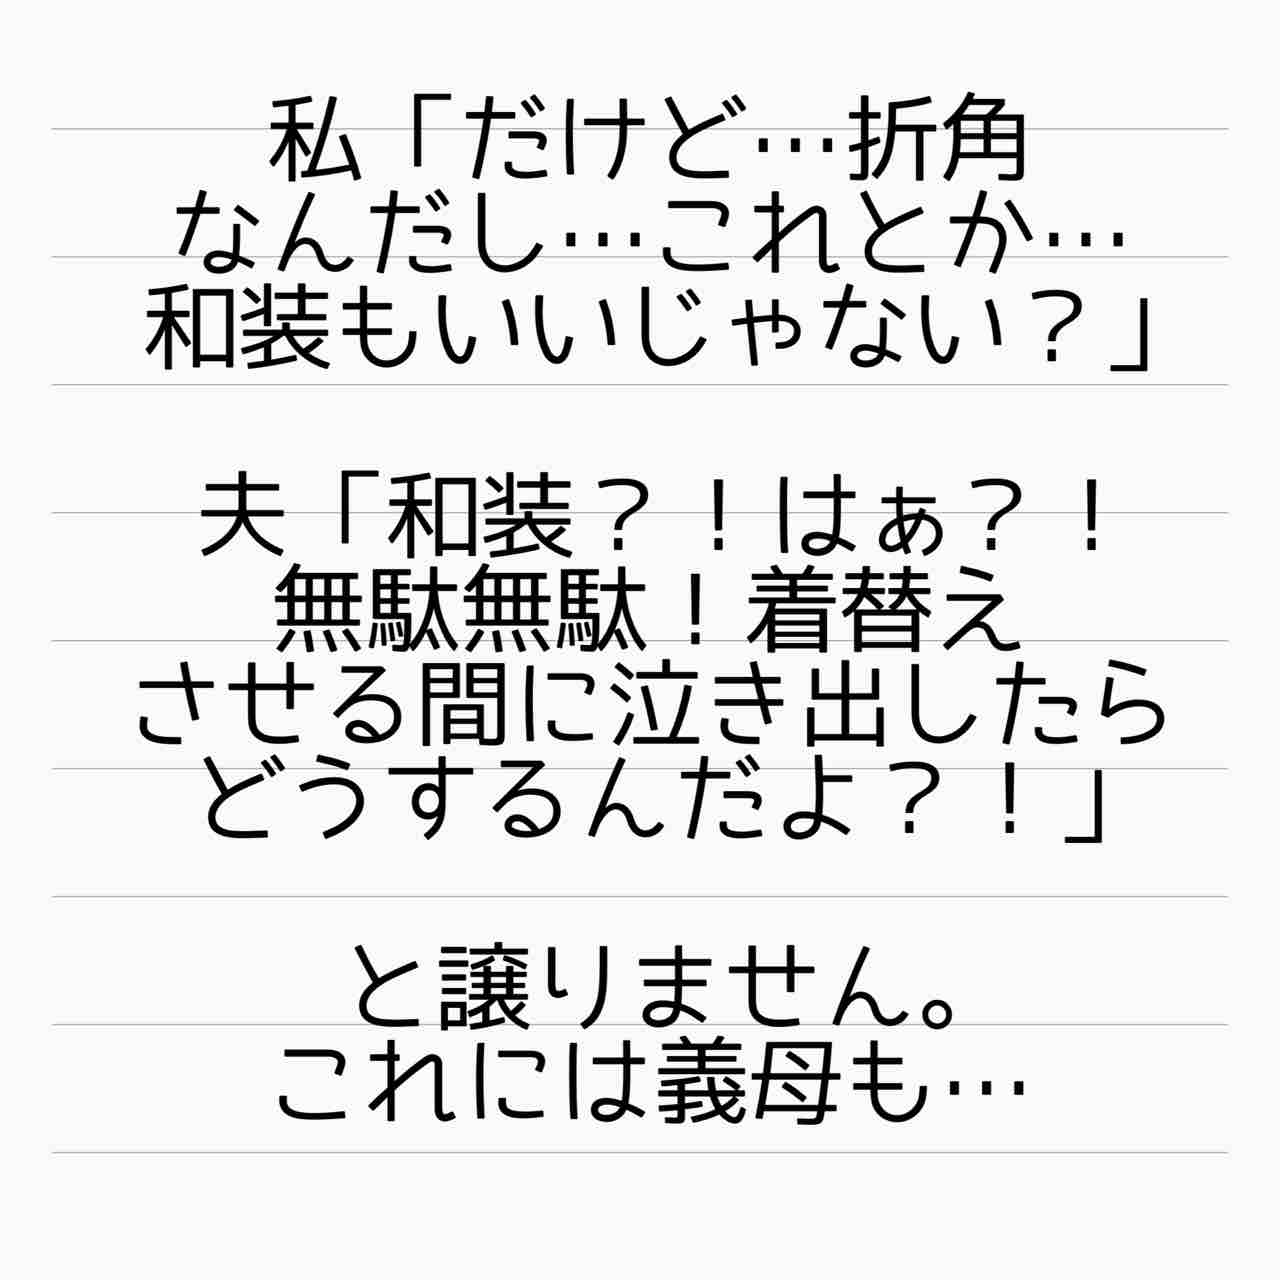 私「だけど…折角
なんだし…これとか…
和装もいいじゃない？」
夫「和装？！はぁ？！
無駄無駄！着替え
させる間に泣き出したら
どうするんだよ？！」
と譲りません。
これには義母も…